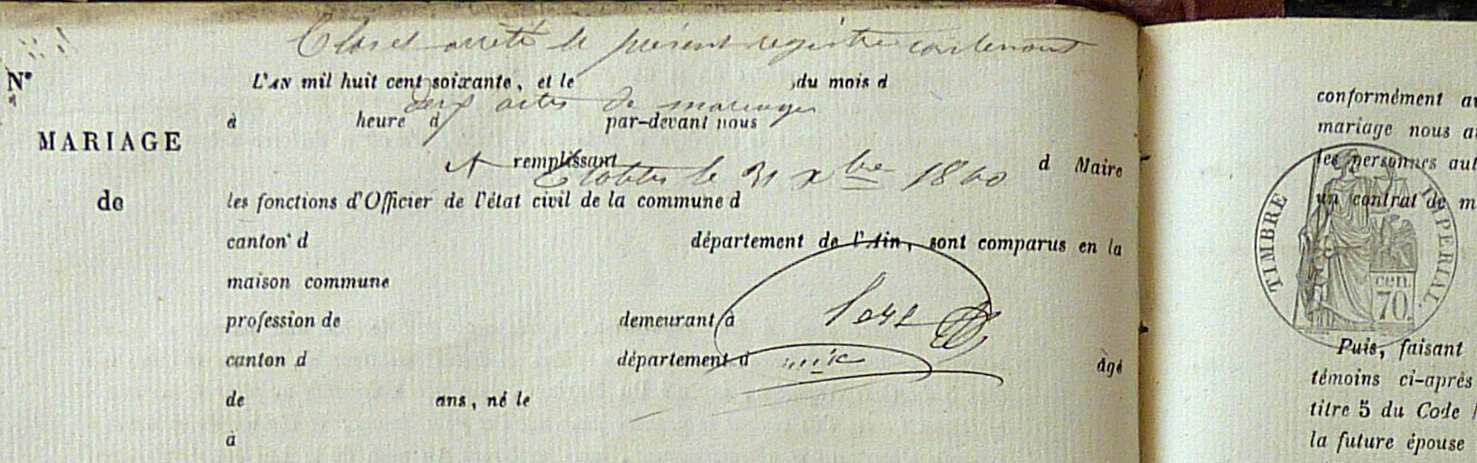 Clos et arrêté le présent registre contenant
N°
L'AN mil huit cent soixante, et le ,du mois d
deux actes de mariages
à heure d par-devant nous
MARIAGE
A remplissant d Maire
le 31 Xbre 1860
de
les fonctions d'Officier de l'état civil de la commune d
canton d département de l'Ain, sont comparus en la
maison commune
profession de demeurant à
canton d département d âgé
mic
de ans, né le
à
conformément
mariage nous
les personnes
un contrat de m
TIMBRE IMPERIAL
70 cen.
Puis, faisant
témoins ci-après
titre 5 du Code
la future épouse